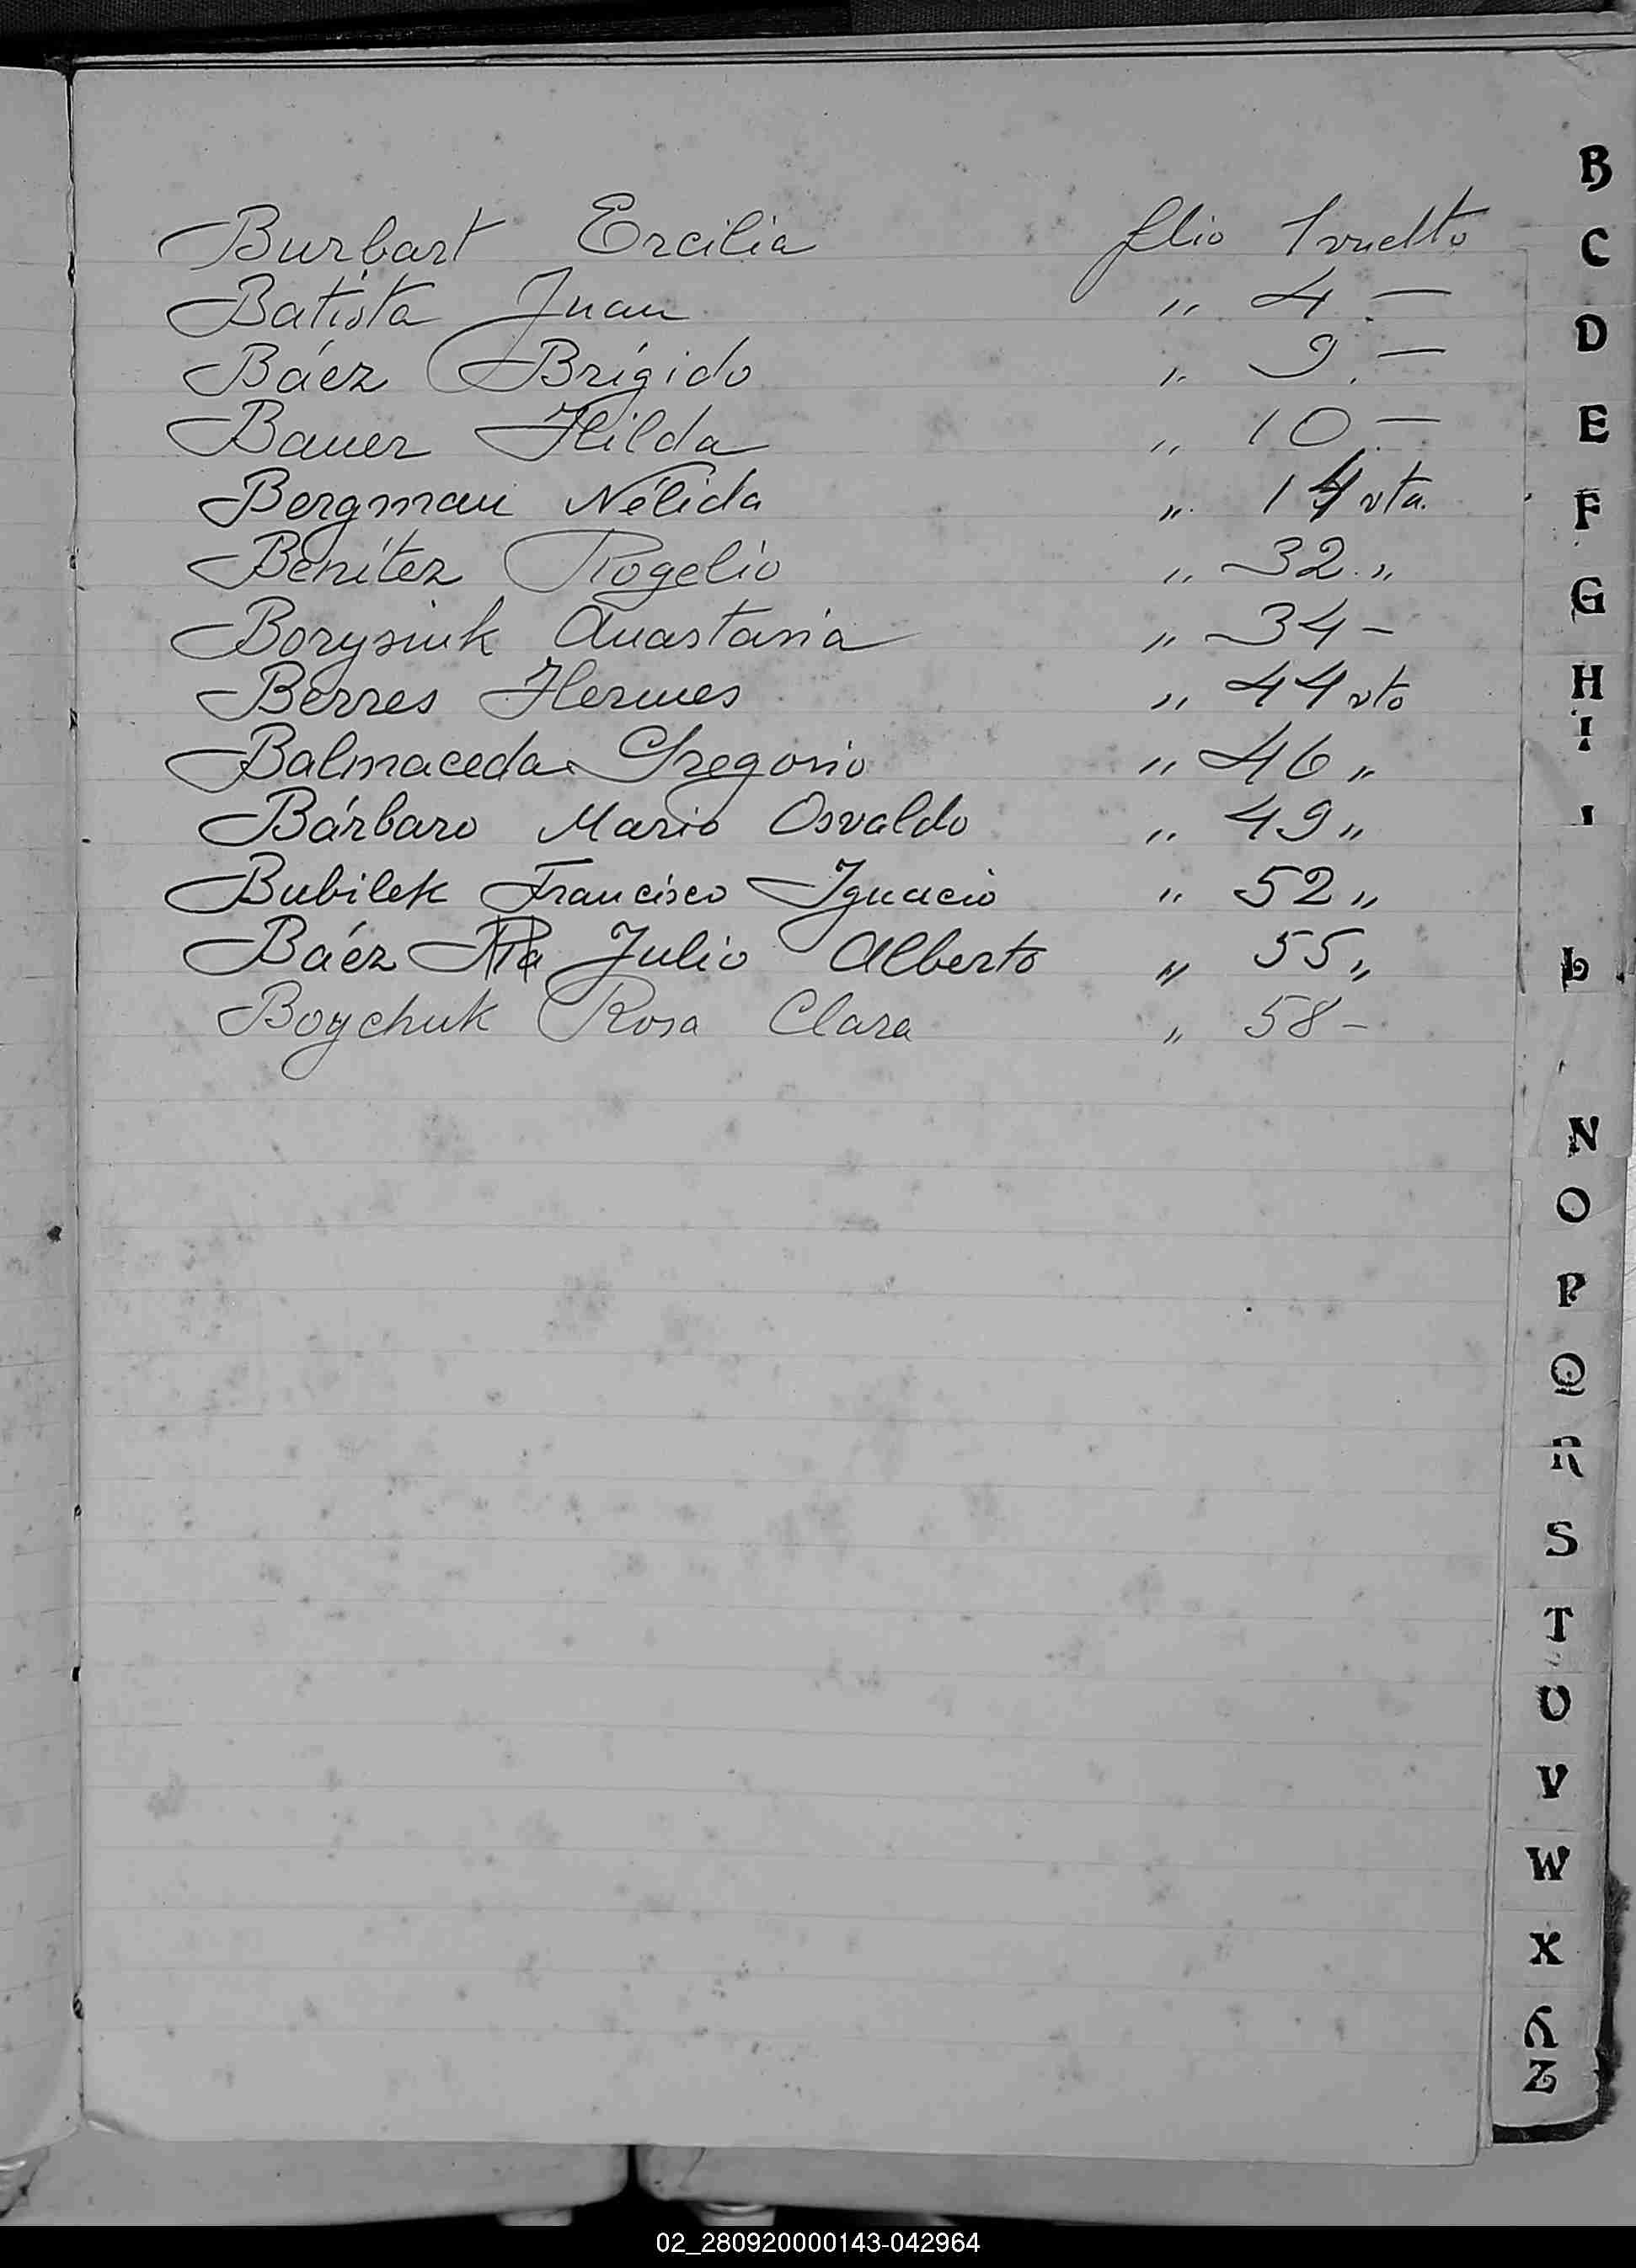 Burbart Ercilia flio 1 vuelto
Batista Juan " 4 —
Báez Brígido " 9. —
Bauer Hilda " 10 —
Bergman Nélida " 14 vta.
Benítez Rogelio " 32 "
Borysiuk Anastasia " 34 -
Berres Hermes " 44 vto
Balmaceda Gregorio " 46 "
Bárbaro Mario Osvaldo " 49 "
Bubilek Francisco Ignacio " 52 "
Báez Julio Alberto " 55 "
Boychuk Rosa Clara " 58 -
B
C
D
E
F
G
H
I
L
N
O
P
Q
R
S
T
U
V
W
X
Y
Z
02_280920000143-042964